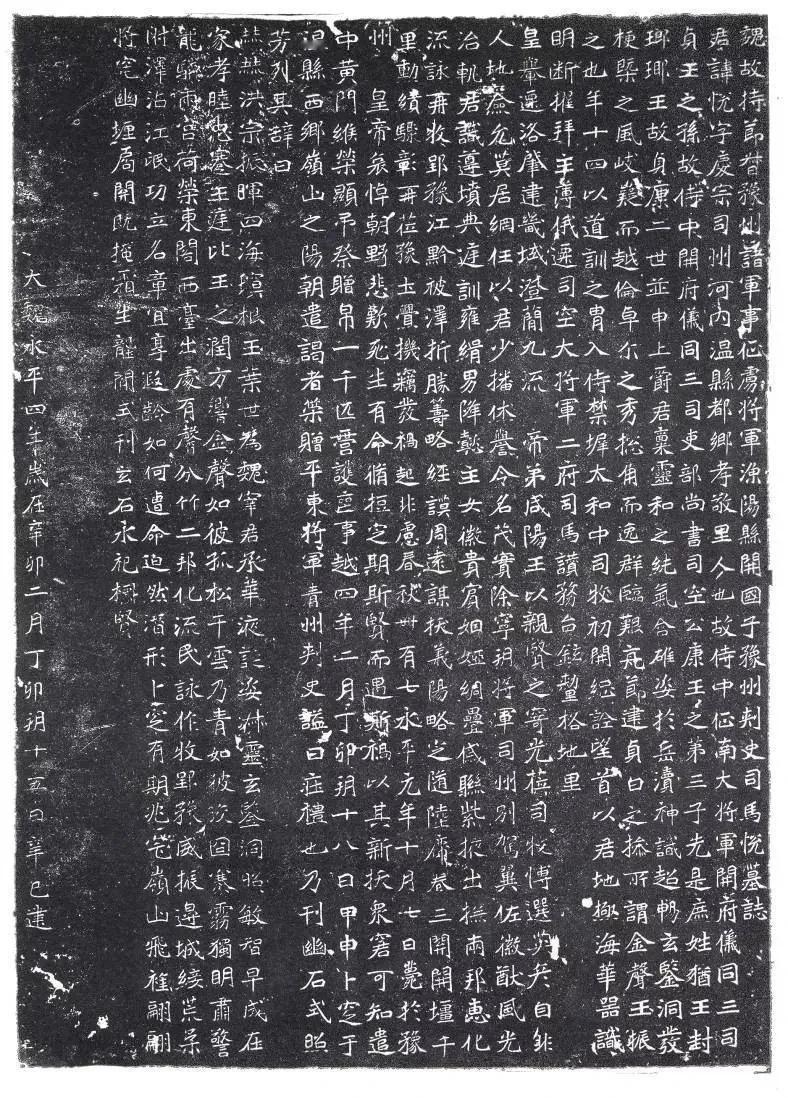 魏故持節督豫州諸軍事征虜將軍漁陽縣開國子豫州刺史司馬悅墓誌
君諱悅字慶宗司州河內溫縣都鄉孝敬里人也故侍中征南大將軍開府儀同三司
貞王之孫故侍中開府儀同三司吏部尚書司空公康王之第三子先是庶姓猶王封
瑯瑘王故貞康二世並申上爵君稟靈和之純氣含雄姿於岳瀆神識超暢玄鑒洞發
梗槩之風岐嶷而越倫卓尒之秀揔角而逸群臨艱亮節建貞白之操所謂金聲玉振
之也年十四以道訓之胄入侍禁墀太和中司牧初開綱詮望首以君地極海華器識
明斷擢拜主薄俄遷司空大將軍二府司馬讚務台鉉釐格地里
皇轝遷洛肇建畿域澄簡九流　帝弟咸陽王以親賢之寄光莅司牧博選英彥自非
人地僉允莫居綱任以君少播休譽令名茂實除寧朔將軍司州別駕翼佐徽猷風光
治軌君識遵墳典庭訓雍緝男降懿主女徽貴賓姻婭綢疊戚聯紫掖出撫兩邦惠化
流詠再牧郢豫江黔被澤折勝籌略經謨周遠謀拔義陽略定隨陸廓卷三關開壃千
里勳績驟彰再莅豫土舋機竊發禍起非慮春秋卌有七永平元年十月七日薨於豫
州　皇帝哀悼朝野悲歎死生有命脩短定期斯賢而遇斯禍以其新拔眾窘可知遣
中黃門緱榮顯弔祭贈帛一千匹營護喪事越四年二月丁卯朔十八日甲申卜窆于
溫縣西鄉嶺山之陽朝遣謁者榮贈平東將軍青州刺史謚曰莊禮也乃刊幽石式照
芳烈其辭曰
燾燾洪宗振暉四海瓊根玉葉世為魏宰君承華液誕姿淋靈玄鑒洞照敏智早成在
家孝睦忠蹇王庭比王之潤方響金聲如彼孤松干雲乃青如彼沒固寒霧獨明肅警
龍驎雨宮荷榮東閤西臺出處有聲分竹二邦化流民詠作牧郢豫威振邊城綏荒柔
附澤沾江氓功立名章宜享遐齡如何遣命迫然潛形卜窆有期兆宅嶺山飛旌翩翩
將宅幽堙扃開既掩霜生壟間式刊玄石永祀標賢
大魏永平四年歲在辛卯二月丁卯朔十五日辛巳建